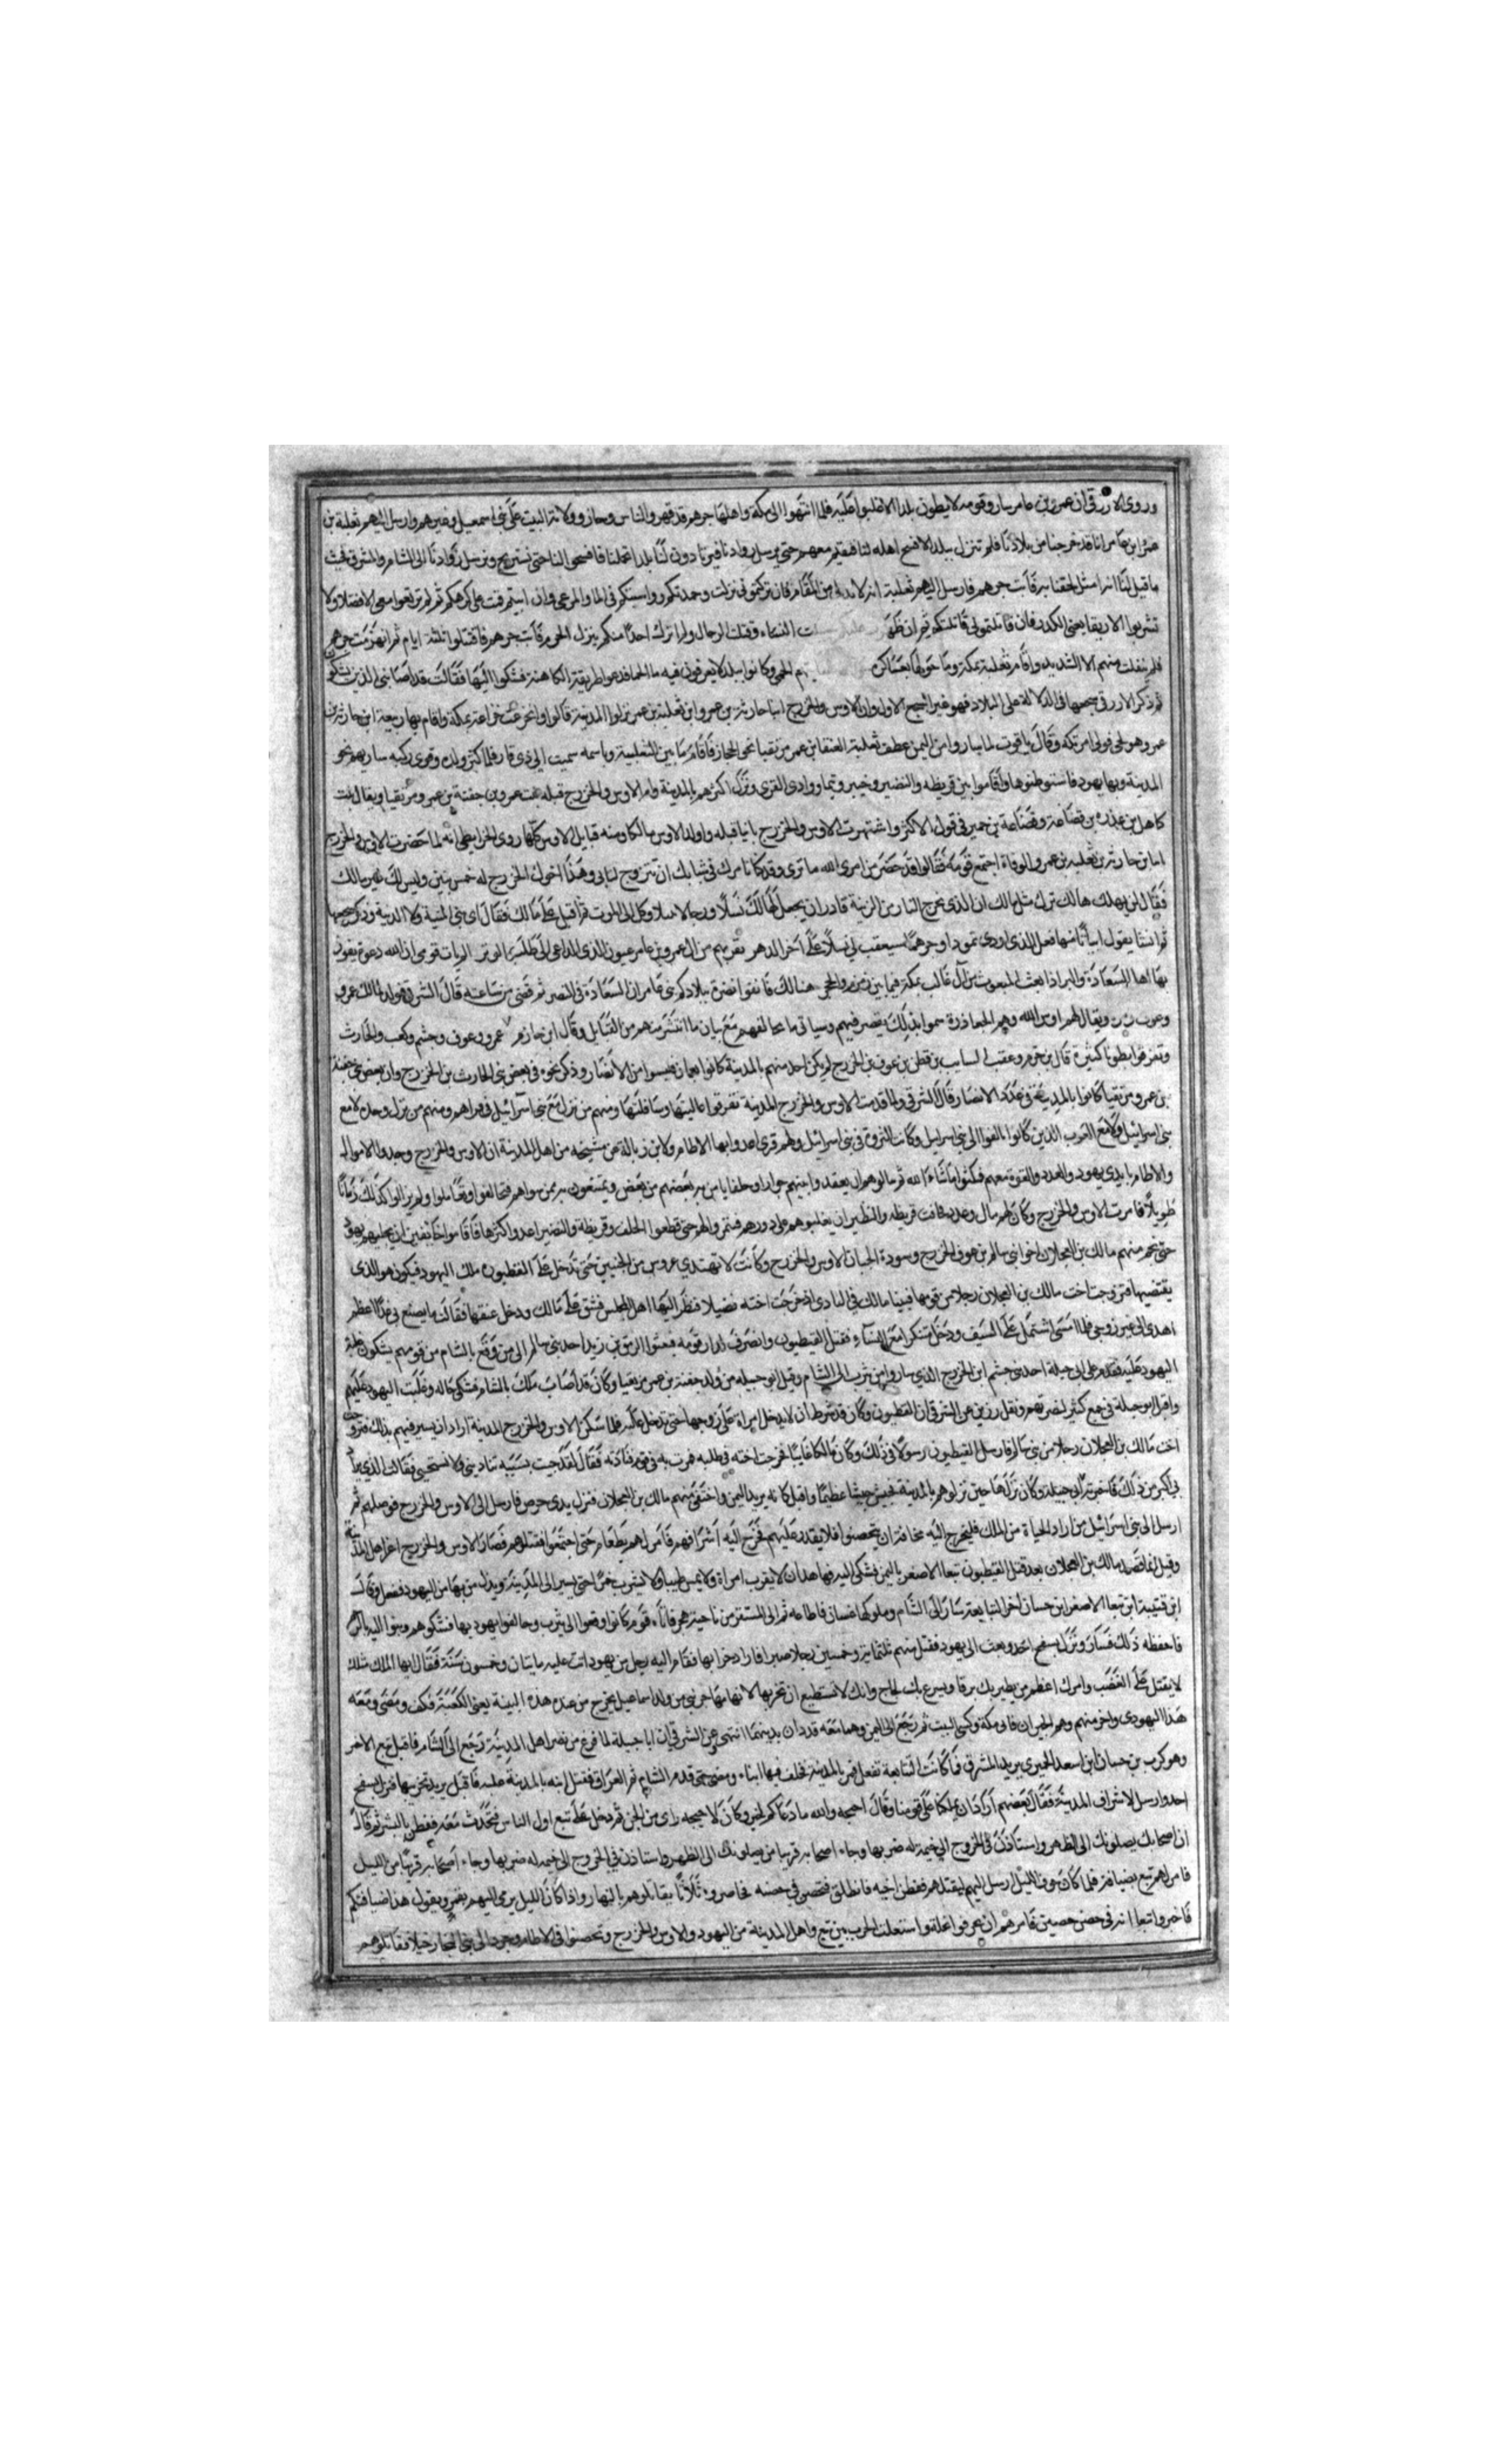 وروى الازرقي ان عمرو بن عامر سار وقومه لا يطون بلدا الا غلبوا عليه فلما انتهوا الى مكة واهلها جرهم قد قهروا الناس وحازوا ولاية البيت على بني اسمعيل وغيرهم وارسل اليهم ثعلبة بن
عمرو بن عامر انا قد خرجنا من بلادنا فلم ننزل ببلد الا فسح اهله لنا فنقيم معهم حتى نرسل روادنا فيرتادون لنا بلدا يحملنا فافسحوا لنا حتى نستريح ونرسل روادنا الى الشام والمشرق فحيث
ما قيل لنا انه امثل لحقنا به فابت جرهم فارسل اليهم ثعلبة انه لا بد لي من المقام فان تركتموني نزلت وحمدتكم وواسيتكم في الما والمرعى وان ابيتم اقمت على كرهكم ثم لم ترتعوا معي الا فضلا ولا
تشربوا الا ريقا يعني الكدر فان قاتلتموني قاتلتكم ثم ان ظهرت عليكم سبيت النساء وقتلت الرجال ولم اترك احدا منكم ينزل الحرم فابت جرهم فاقتتلوا ثلثة ايام ثم انهزمت جرهم
فلم ينفلت منهم الا الشديد واقام ثعلبة بمكة وما حولها بعساكره الحمى وكانوا ببلد لا يعرفون فيه ما الحما فدعوا طريفة الكاهنة فشكوا اليها فقالت قد اصابني الذي تشكون
ثم ذكر الازرقي سجعها في الدلالة على البلاد فهو غير السجع الاول وان الاوس والخزرج ابنا حارثة بن عمرو ابن ثعلبة بن عمرو نزلوا المدينة قالوا وانخزعت خزاعة بمكة واقام بها ربيعة ابن حارثة بن
عمرو وهو لحي فولي امر مكة وقال ياقوت لما سار وا من اليمن عطف ثعلبة العنقا بن عمرو مزيقيا نحو الحجاز فاقام ما بين الثعلبية وباسمه سميت الى ذي قار فلما كثر ولده وقوي ركنه سار بهم نحو
المدينة وبها يهود فاستوطنوها واقاموا بين قريظه والنضير وخيبر وتيما ووادي القرى ونزل اكثرهم بالمدينة وام الاوس والخزرج قيله بنت عمرو بن جفنة بن عمرو مزيقيا ويقال بنت
كاهل بن عذره بن قضاعة وقضاعة بن حمير في قول الاكثر واشتهرت الاوس والخزرج بابنا قيله واولد الاوس مالكا ومنه قبايل الاوس كلها روى الخرايطي انه لما حضرت الاوس والخزرج
ابنا بن حارثة بن ثعلبه بن عمرو الوفاة اجتمع قومه فقالوا قد حضر من امر الله ما ترى وقد كنا نامرك في شبابك ان تتزوج لتابى وهذا اخوك الخزرج له خمس بنين وليس لك غير مالك
فقال لن يهلك هالك ترك مثل مالك ان الذي يخرج النار من الزنية قادر ان يجعل لمالك نسلا ورجالا بسلا وكل الى الموت ثم اقبل على مالك فقال اي بني المنية ولا الدنية وذكر سجعها
ثم انشا يقول ابياتا منها لعل الذي اودى ثمود وجرهما سيعقب لي نسلا على اخر الدهر تقربهم من ال عمرو بن عامر عيون لدى الداعي الى طلب الوتر الم يات قومي ان لله دعوة يفوز
بها اهل السعادة والبر اذا بعث المبعوث من ال غالب بمكة فيما بين زمزم والحجر هنالك فابغوا نصره ببلادكم بني عامر ان السعادة في النصر ثم قضى من ساعته قال الشرقي فولد لمالك عمرو
وعوف ومرة ويقال لهم اوس الله وهم الجعاذرة سموا بذلك لقصر فيهم وسياتي ما يخالفهم مع بيان ما انتشر منهم من القبايل وقال ابن حازم عمرو وعوف وجشم وكعب والحارث
وتفرقوا بطونا كثيرة قال بن حزم وعقب السايب بن قطن بن عوف بن الخزرج لم يكن احد منهم بالمدينة كانوا بعمان فليسوا من الانصار وذكر نحوه في بعض بني الحارث بن الخزرج وان بعض بني جفنة
بن عمرو مزيقيا كانوا بالمدينة في عداد الانصار قال الشرقي ولما قدمت الاوس والخزرج المدينة تفرقوا عاليتها وسافلتها ومنهم من نزل مع بني اسرائيل في قراهم ومنهم من نزل وحده لا مع
بني اسرائيل ولا مع العرب الذين كانوا تالفوا الى بني اسرايل وكانت الثروة في بني اسرائيل ولهم قرى اعدوا بها الاطام ولابن زبالة عن مشيخه من اهل المدينة ان الاوس والخزرج وجدوا الاموال
والاطام بايدي يهود والعدد والقوة معهم فمكثوا ما شاء الله ثم سالوهم ان يعقدوا بينهم جوارا وحلفا يامن به بعضهم من بعض ويمتنعون به ممن سواهم فتحالفوا وتعاملوا ولم يزالوا كذلك زمانا
طويلا فامرت الاوس والخزرج وكان لهم مال وعدد فخافت قريظه والنظير ان يغلبوهم على دورهم فتنمروا لهم حتى قطعوا الحلف وقريظة والنضير اعدوا اكثرها فاقاموا خائفين ان تجليهم يهود
حتى نجم منهم مالك بن العجلان اخو بني سالم بن عوف الخزرج وسوده الحيان الاوس والخزرج وكانت لا تهتدي عروس من الحيين حتى تدخل على الفطيون ملك اليهود فيكون هو الذي
يفتضها فتزوجت اخت مالك بن العجلان رجلا من قومها فبينا مالك في النادي اذ خرجت اخته فضلا فنظر اليها اهل المجلس فشق على مالك ودخل عنفها فقالت ما يصنع بي غدا اعظم
اهدى الى غير زوجي فلما امسى اشتمل على السيف ودخل متنكرا مع النساء فقتل الفيطيون وانصرف لدار قومه فبعثوا الرمق بن زيد احد بني سالم الى من وقع بالشام من قومهم يشكون غلبة
اليهود عليه فقدم على ابي جبيلة احد بني جشم ابن الخزرج الذي ساروا من يثرب الى الشام وقيل ابو جبيله من ولد جفنة بن عمرو مزيقيا وكان قد اصاب ملك بالشام فشكى حاله وغلبت اليهود عليهم
واقبل ابو جبيلة في جمع كثير لنصرتهم ونقل رزين عن الشرقي ان الفطيون وكان قد شرط ان لا يدخل امراة على زوجها حتى تدخل عليه فلما سكن الاوس والخزرج المدينة اراد ان يسير فيهم بذلك فتزوجت
اخت مالك بن العجلان رجلا من بني سالم فارسل الفيطيون رسولا في ذلك وكان مالكا غايبا فخرجت اخته في طلبه فمرت به في قوم فنادته فقال لقد جيت بسيبة تنادينني ولا تستحيي فقالت الذي يراد
بي اكبر من ذلك فاخبرته ابي جبيله وكان نزلها حين نزلوهم بالمدينة فجيش جيشا عظيما واقبل كانه يريد اليمن واختفى منهم مالك بن العجلان فنزل بذي حرض فارسل الى الاوس والخزرج فوصلهم ثم
ارسل الى بني اسرائيل من اراد الحياة من الملك فليخرج اليه مخافة ان يتحصنوا فلا يقدر عليهم فخرج اليه اشرافهم فامر لهم بطعام حتى اجتمعوا فقتلهم فصار الاوس والخزرج اعز اهل المدينة
وقيل انما قصد مالك بن العجلان بعد قتل الفيطيون تبعا الاصغر باليمن فشكى اليه فعاهد ان لا يقرب امراة ولا يمس طيبا ولا يشرب خمرا حتى يسير الى المدينة ويذل من بها من اليهود ففعل وقال
ابن قتيبة ابن تبعا الاصغر ابن حسان اخر التبابعة سار الى الشام وملوكها غسان فاطاعه ثم الى المشقر من ناحية هجر فاتاه قوم كانوا وقعوا الى يثرب وحالفوا يهود بها فشكوهم ومتوا اليه بالرحم
فاحفظه ذلك فسار ونزل بسفح احد وبعث الى يهود فقتل منهم ثلثماية وخمسين رجلا صبرا فاراد خرابها فقام اليه رجل من يهود اتت عليه مايتان وخمسون سنة فقال ايها الملك مثلك
لا يقتل على الغضب وامرك اعظم من يطير بك برق او يسرع بك لجاج وانك لا تستطيع ان تخربها لانها مهاجر نبي من ولد اسماعيل يخرج من عند هذه البينة يعني الكعبة فكف ومضى ومعه
هذا اليهودي واخر منهم وهم الحبران فاتى مكة وكسى البيت ثم رجع الى اليمن وهما معه قد دان بدينهما انتهى وعن الشرقي ان ابا جبيلة لما فرغ من نصر اهل المدينة رجع الى الشام فاقبل تبع الاخر
وهو كرب بن حسان ابن اسعد الحميري يريد المشرق كما كانت التبابعة تفعل فمر بالمدينة فخلف فيها ابناء ومضى حتى قدم الشام ثم العراق فقتل ابنه بالمدينة غيلة فاقبل يريد تخريبها فنزل بسفح
احد وارسل لاشراف المدينة فقال بعضهم اراد ان يملكنا على قومنا وقال احيحه والله ما دعاكم لخير وكان لاحيحه راى من الجن ثم دخل على تبع اول الناس فتحدث معه ففطن بالشر ثم قال
ان اصحابك يصلونك الى الظهر واستاذن في الخروج الى خيمة له ضربها وجاء اصحابه قريبا من يصلونك الى الظهر واستاذن في الخروج الى خيمه له ضربها وجاء اصحابه قريبا من الليل
فامر لهم تبع بضيافة فلما كان جوف الليل ارسل اليهم ليقتلهم ففطن احيه فانطلق فتحصن في حصنه فحاصروه ثلاثا يقاتلوهم بالنهار واذا كان الليل يرمي اليهم بتمر ويقول هذا ضيافتكم
فاخبروا تبعا انه في حصن حصين فامرهم ان يحرقوا نخله واستعلت الحرب بين تبع واهل المدينة من اليهود والاوس والخزرج وتحصنوا في الاطام وجرد الى بني النجار خيلا فقاتلوهم